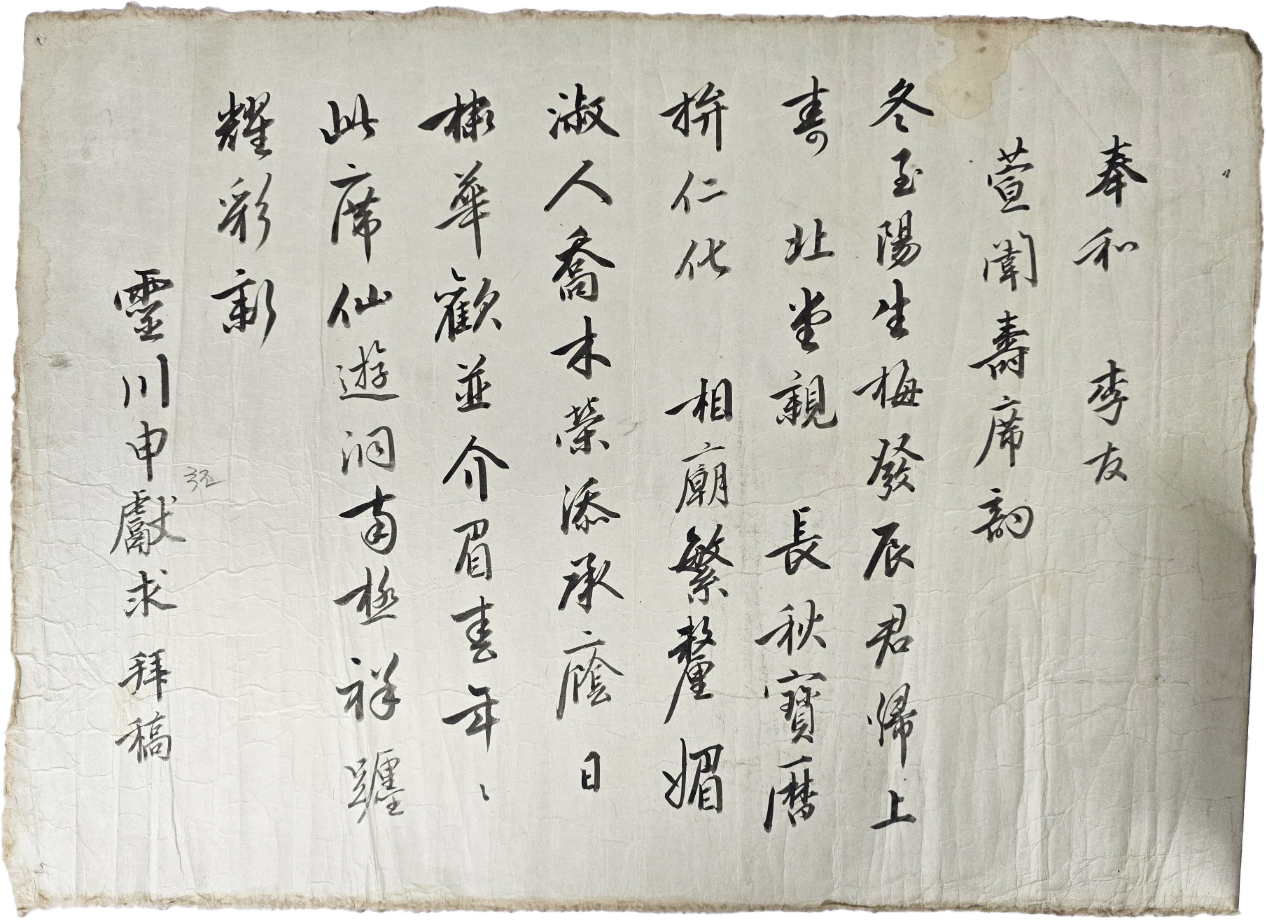 奉和 李友
萱闈壽席韵
冬至陽生梅發辰君歸上
壽 北堂親 長秋寶曆
拚仁化 相廟繁釐媚
淑人喬木榮添承廕日
棣華歡並介眉春年〻
此席仙遊洞南極祥躔
耀彩新
靈川申獻求拜稿